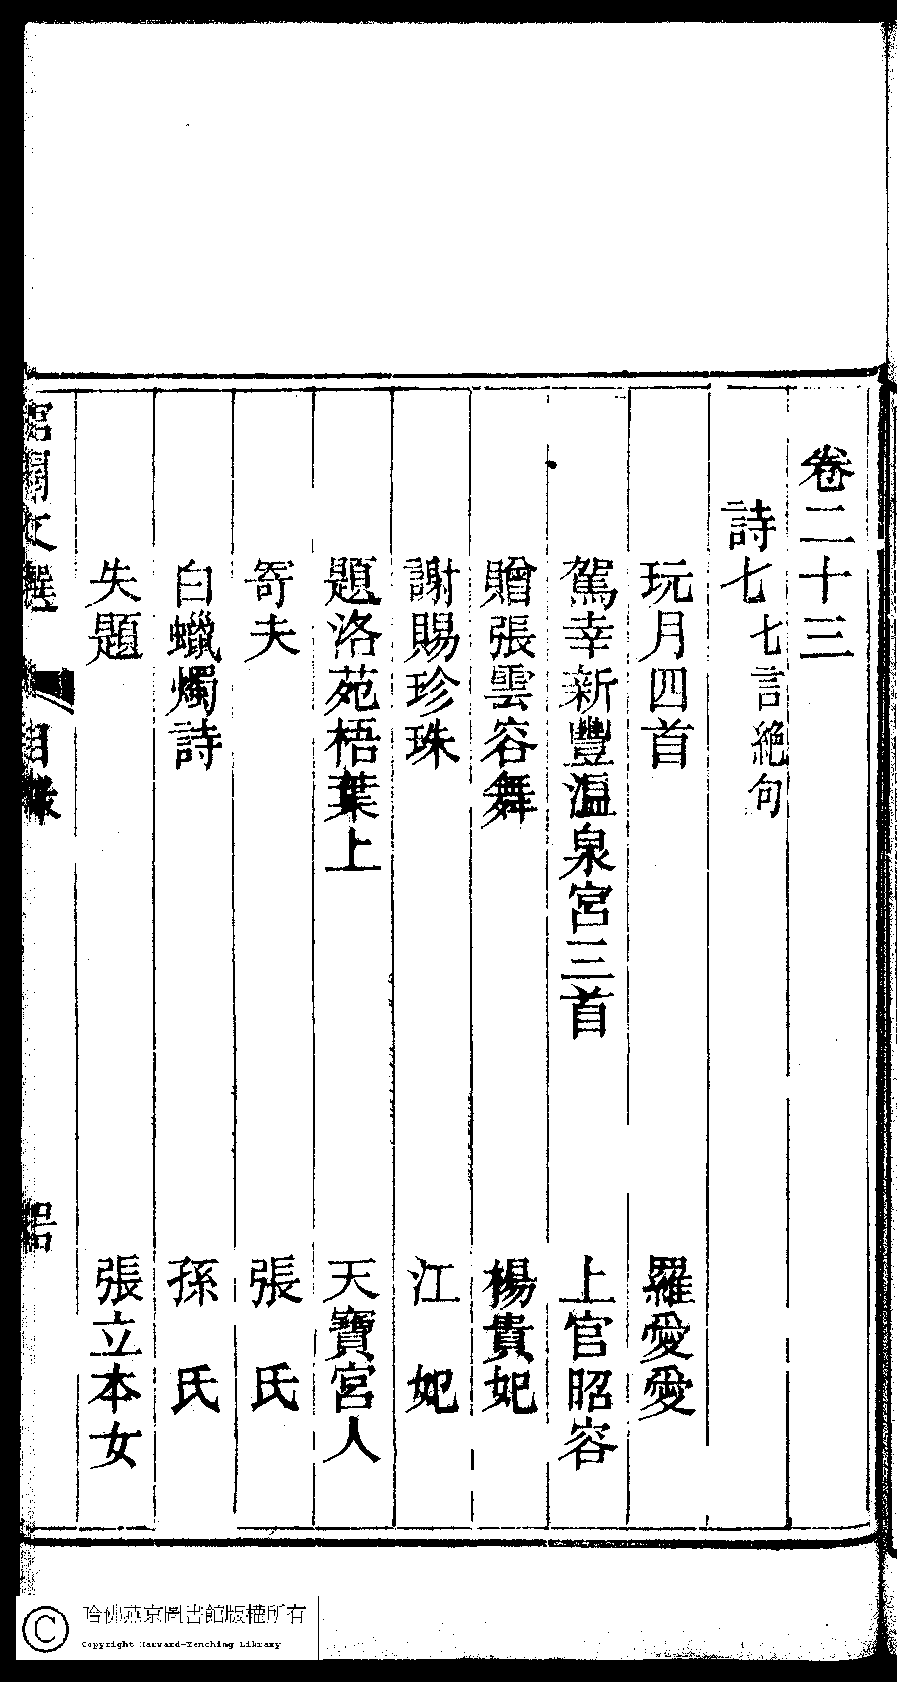 卷二十三
詩七 七言絶句
玩月四首 羅愛愛
駕幸新豐溫泉宮三首 上官昭容
贈張雲容舞 楊貴妃
謝賜珍珠 江妃
題洛苑梧葉上 天寶宮人
寄夫 張氏
白蠟燭詩 孫氏
失題 張立本女
宮閨文選 目錄
哈佛燕京圖書館版權所有
Copyright Harvard-Yenching Library